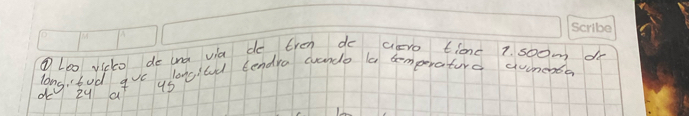 Scribe
① Los vicko de una via de tren de acero tiene 1.500m de
longitud que longitud tendra cuando la temperatura aumenta
de 24 a 45